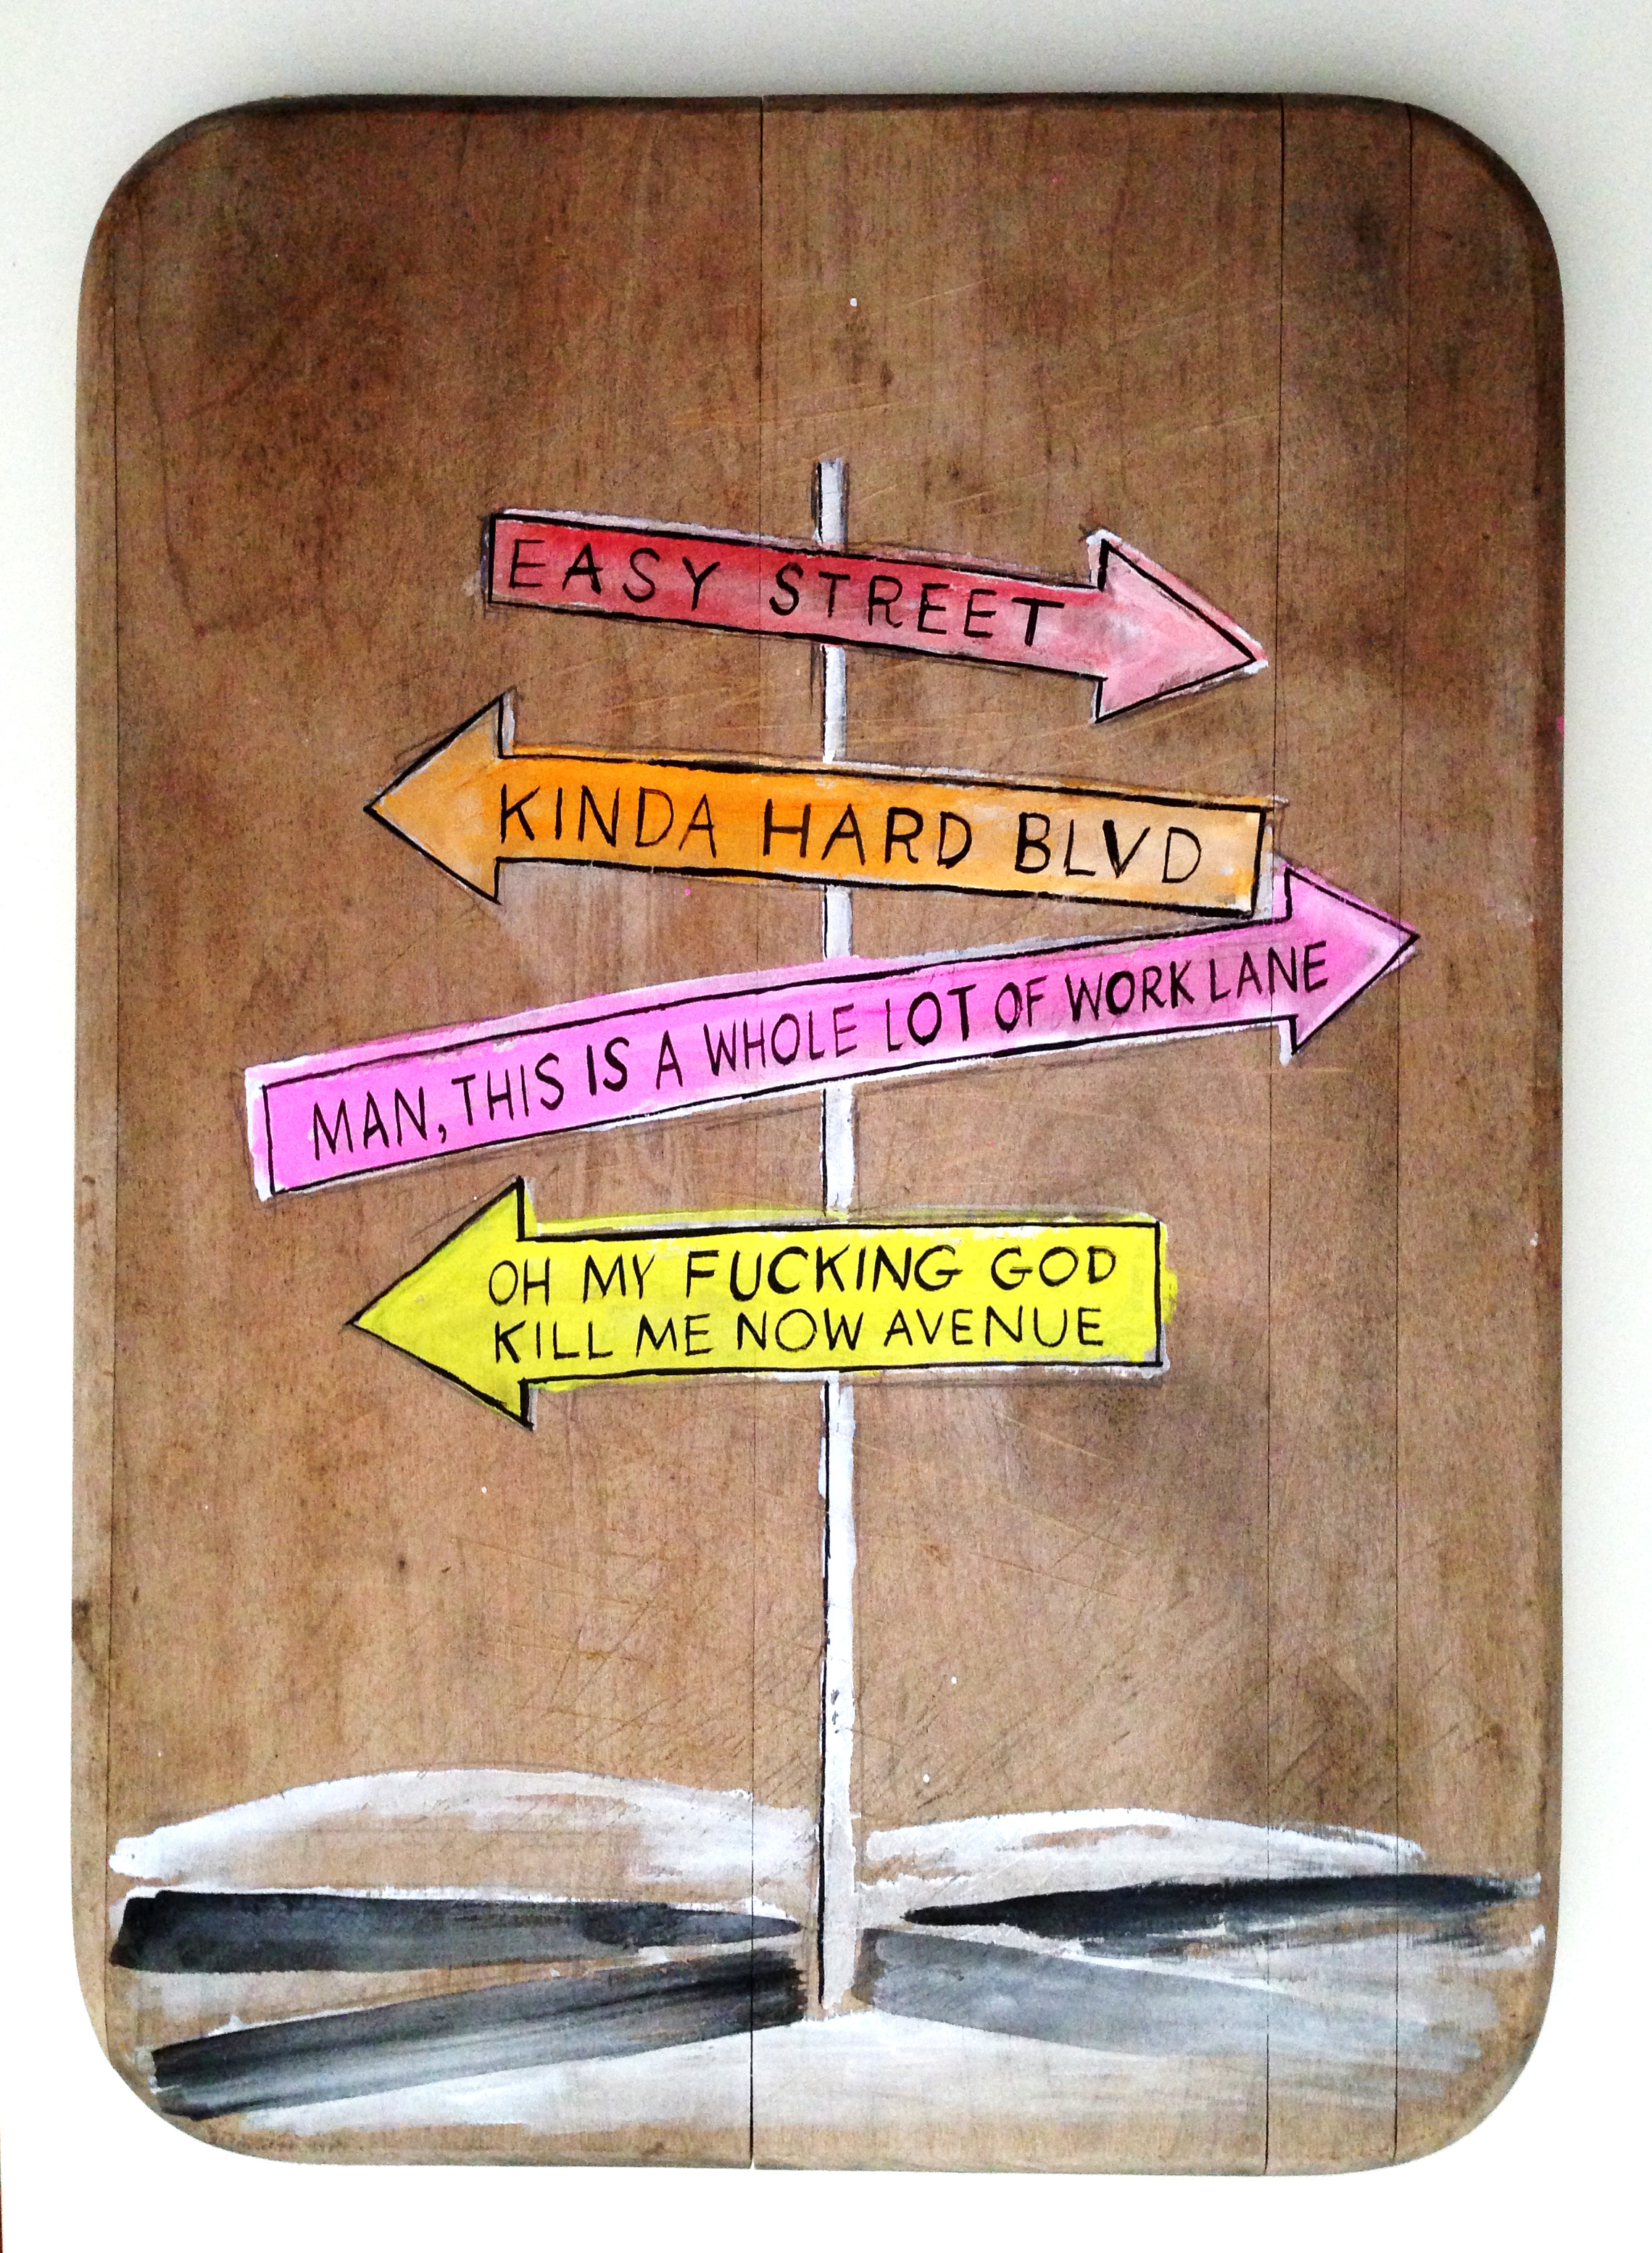 EASY STREET
KINDA HARD BLVD
MAN, THIS IS A WHOLE LOT OF WORK LANE
OH MY FUCKING GOD
KILL ME NOW AVENUE